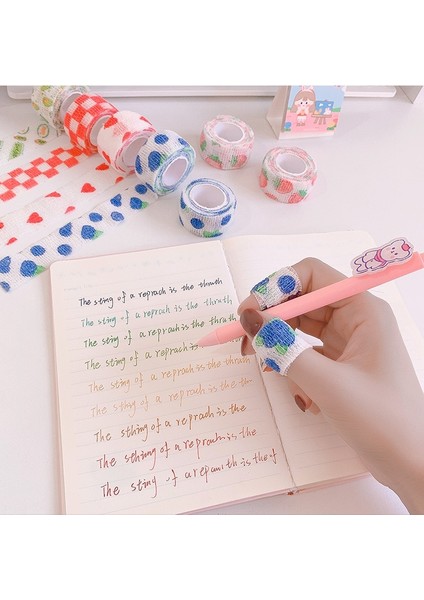 The sting of a reprach is the thruth
The sting of a reprach is the thruth
The sting of a reprach is the thruth
The sting of a reprach is
The sting of a reprach is the thruth
The sting of a reprach is the th
The sthing of a reprach is the
The sthing of a reprach is the
The stiny of a repanith is the of